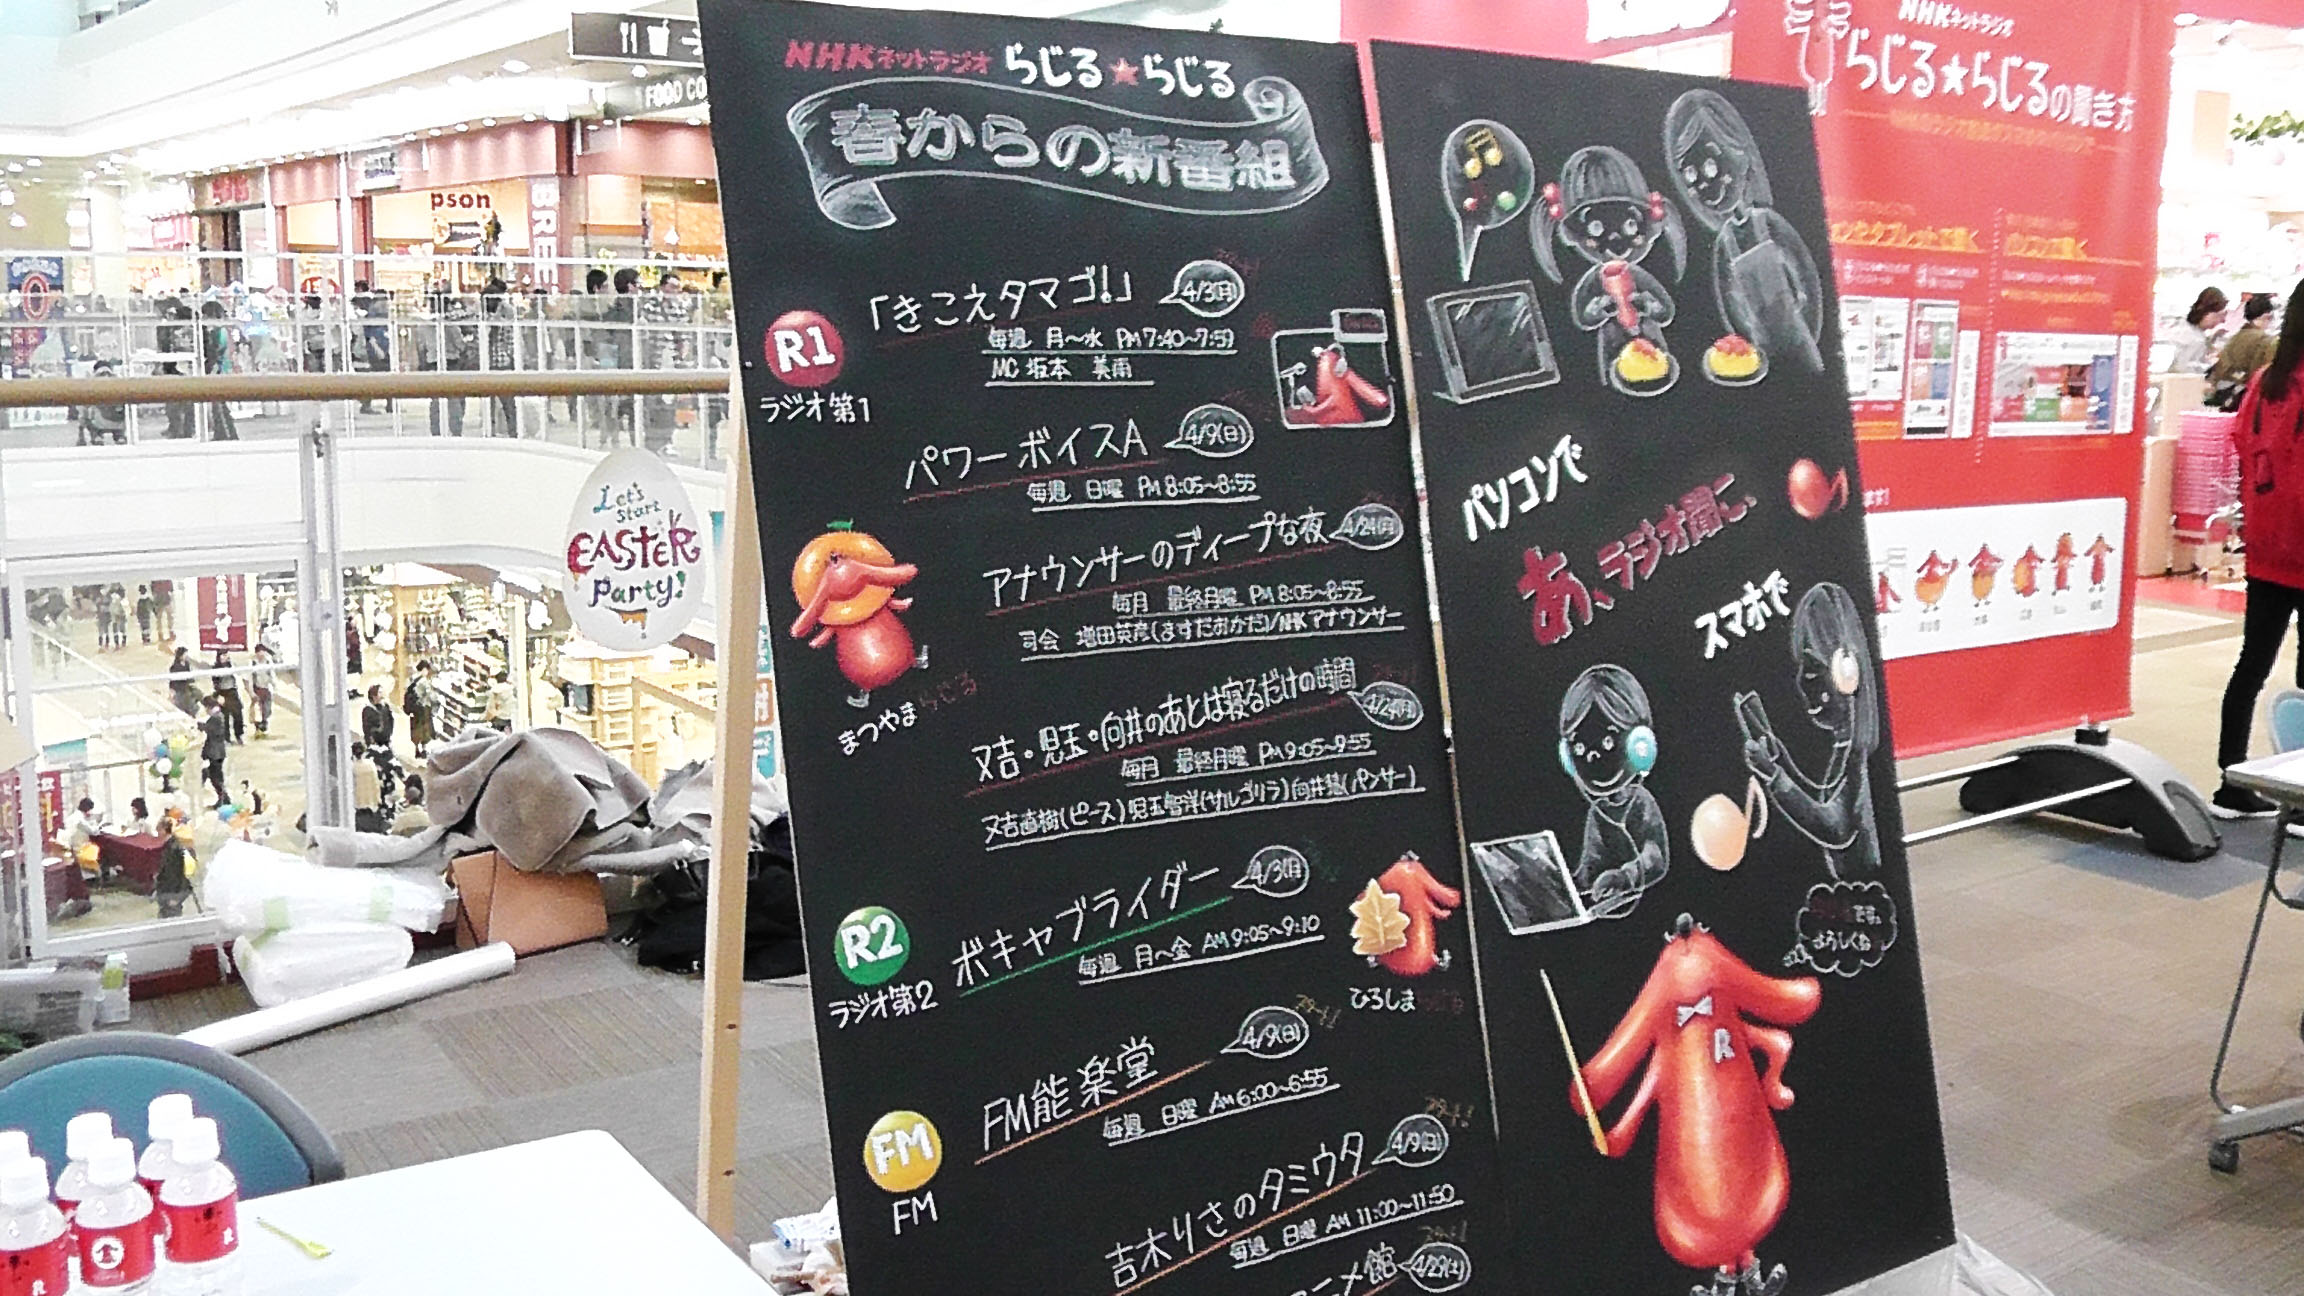 NHKネットラジオ らじる★らじる
春からの新番組
R1
ラジオ第1
「きこえタマゴ!」
4/3(月)
毎週 月〜水 PM7:40〜7:59
MC 坂本 美雨
パワーボイスA
4/9(日)
毎週 日曜 PM8:05〜8:55
アナウンサーのディープな夜
4/24(月)
毎月 最終月曜 PM8:05〜8:55
司会 増田英彦(ますだおかだ)/NHKアナウンサー
まつやまらじる
又吉・児玉・向井のあとは寝るだけの時間
4/24(月)
毎月 最終月曜 PM9:05〜9:55
又吉直樹(ピース)児玉智洋(サルゴリラ)向井慧(パンサー)
R2
ラジオ第2
ボキャブライダー
4/3(月)
毎週 月〜金 AM9:05〜9:10
ひろしま
FM
FM
FM能楽堂
4/9(日)
毎週 日曜 AM6:00〜6:55
吉木りさのタミウタ
4/9(日)
毎週 日曜 AM11:00〜11:50
ニメ館
4/29(土)
パソコンで
あ、ラジオ聞こ、
スマホで
です。
よろしくね
R
NHKネットラジオ
らじる★らじるの聴き方
パソコンで聴く
FOOD CO
pson
BREE
Let's
start
EASTER
Party!